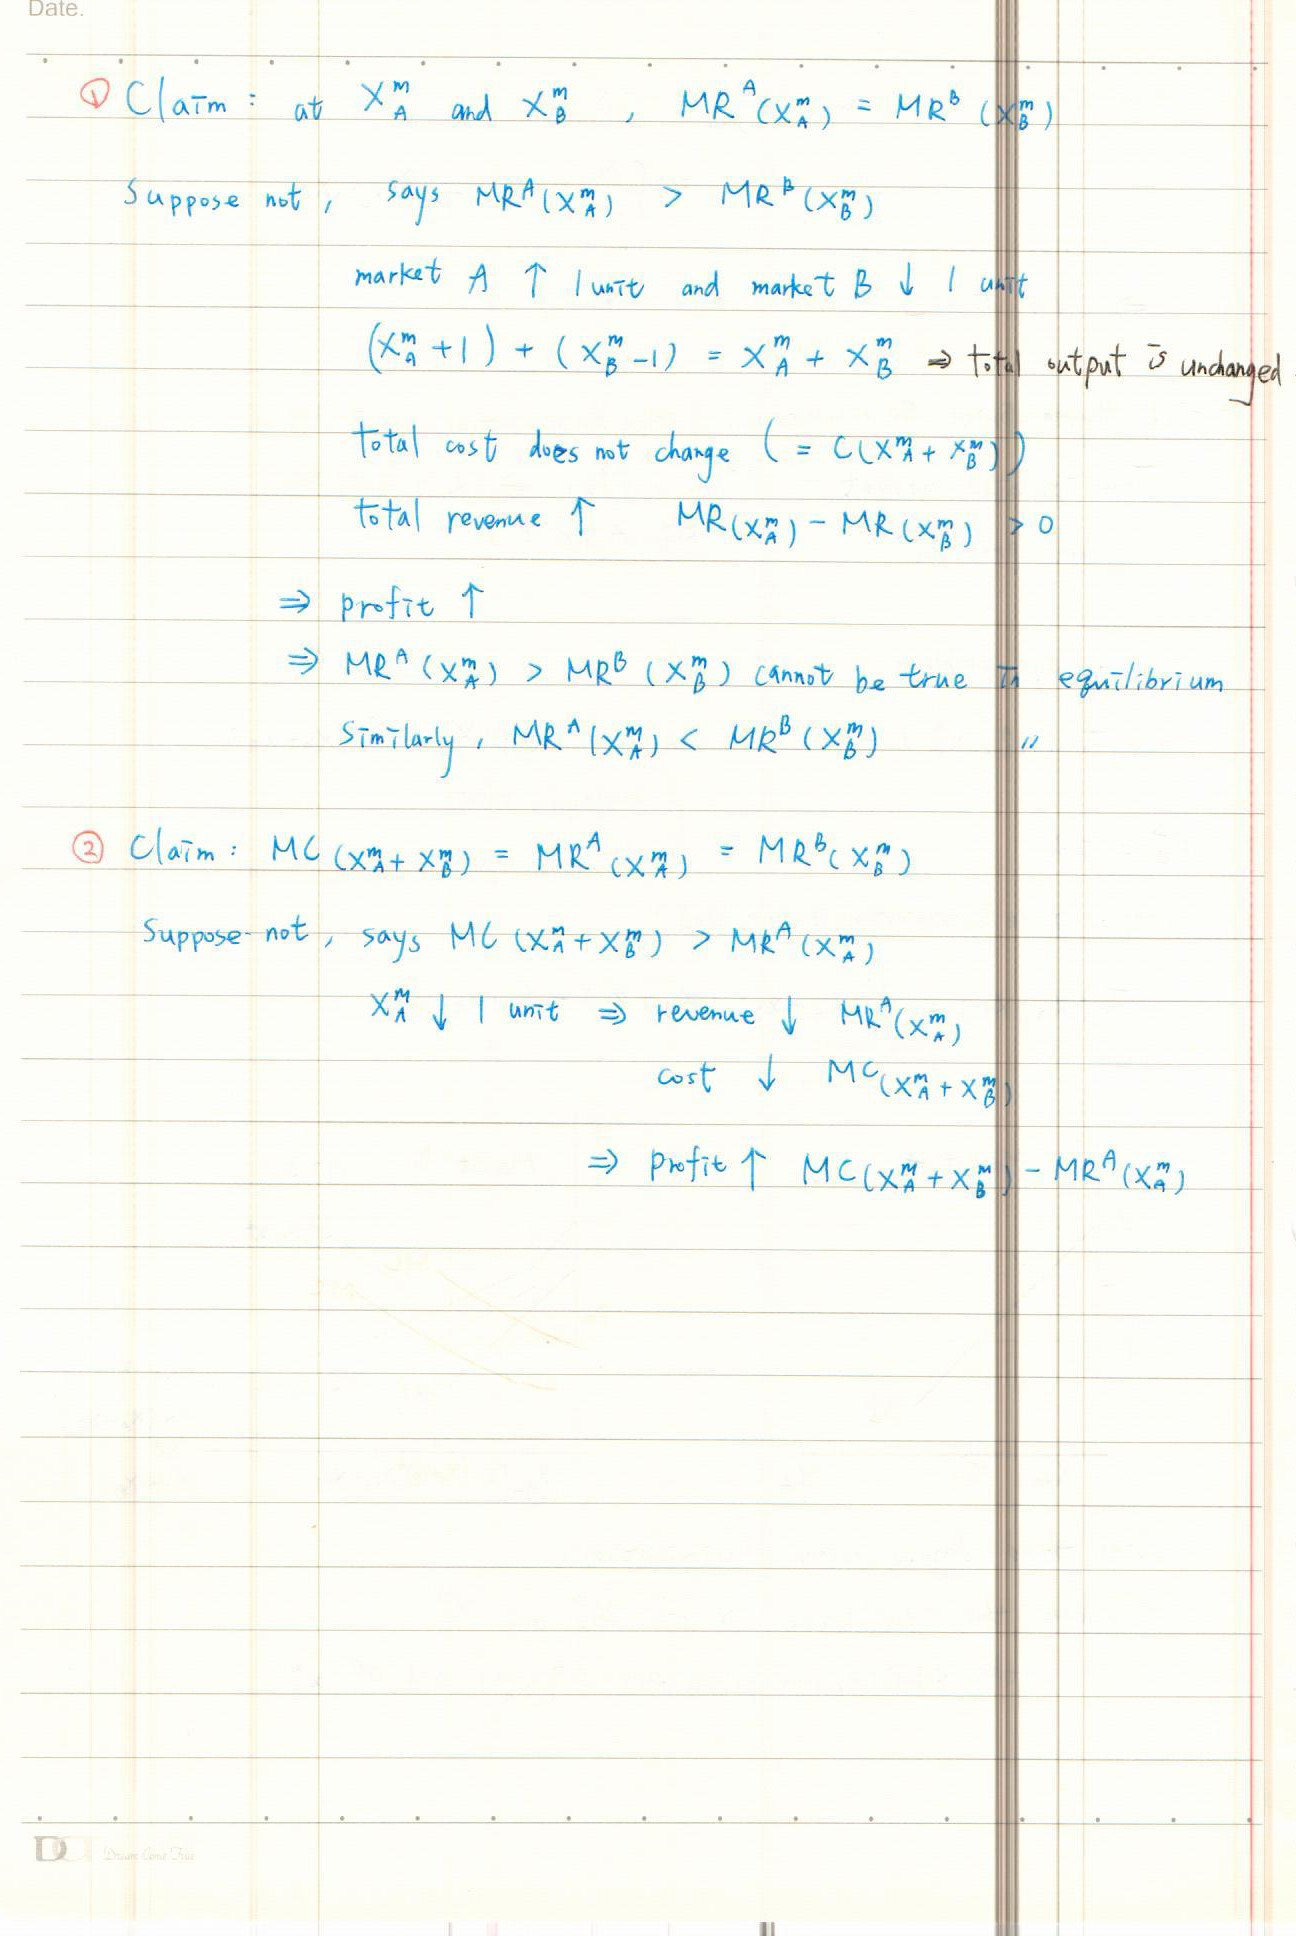 Date.
① Claim : at X_A^m and X_B^m , MR^A(X_A^m) = MR^B (X_B^m)
Suppose not , says MR^A(X_A^m) > MR^B(X_B^m)
market A ↑ 1 unit and market B ↓ 1 unit
(X_A^m + 1) + (X_B^m - 1) = X_A^m + X_B^m ⇒ total output is unchanged
total cost does not change ( = C(X_A^m + X_B^m))
total revenue ↑ MR(X_A^m) - MR(X_B^m) > 0
⇒ profit ↑
⇒ MR^A (X_A^m) > MR^B (X_B^m) cannot be true in equilibrium
Similarly , MR^A (X_A^m) < MR^B (X_B^m) "
② Claim : MC (X_A^m + X_B^m) = MR^A (X_A^m) = MR^B (X_B^m)
Suppose not , says MC (X_A^m + X_B^m) > MR^A (X_A^m)
X_A^m ↓ 1 unit ⇒ revenue ↓ MR^A(X_A^m)
cost ↓ MC(X_A^m + X_B^m)
⇒ profit ↑ MC(X_A^m + X_B^m) - MR^A(X_A^m)
Dream Come True